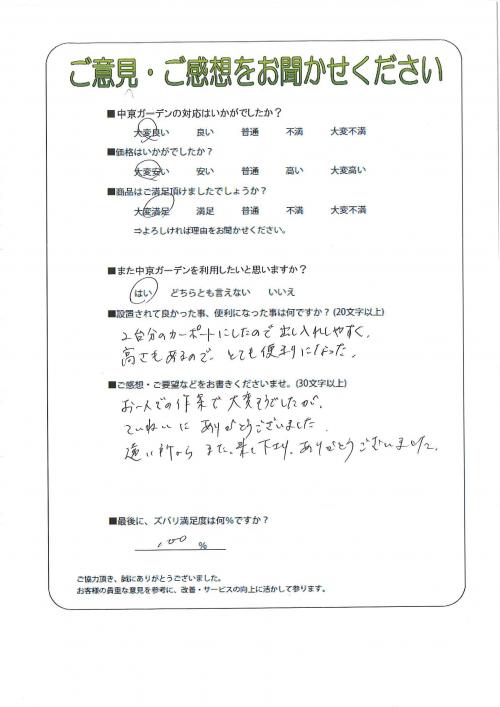 ご意見・ご感想をお聞かせください
■中京ガーデンの対応はいかがでしたか？
大変良い　良い　普通　不満　大変不満
■価格はいかがでしたか？
大変安い　安い　普通　高い　大変高い
■商品はご満足頂けましたでしょうか？
大変満足　満足　普通　不満　大変不満
⇒よろしければ理由をお聞かせください。
■また中京ガーデンを利用したいと思いますか？
はい　どちらとも言えない　いいえ
■設置されて良かった事、便利になった事は何ですか？(20文字以上)
2台分のカーポートにしたので出し入れしやすく、
高さもあるので、とても便利になった。
■ご感想・ご要望などをお書きくださいませ。(30文字以上)
お一人での作業で大変そうでしたが、
ていねいに ありがとうございました
遠い所から また、来て下さり、ありがとうございました。
■最後に、ズバリ満足度は何％ですか？
100 ％
ご協力頂き、誠にありがとうございました。
お客様の貴重な意見を参考に、改善・サービスの向上に活かして参ります。